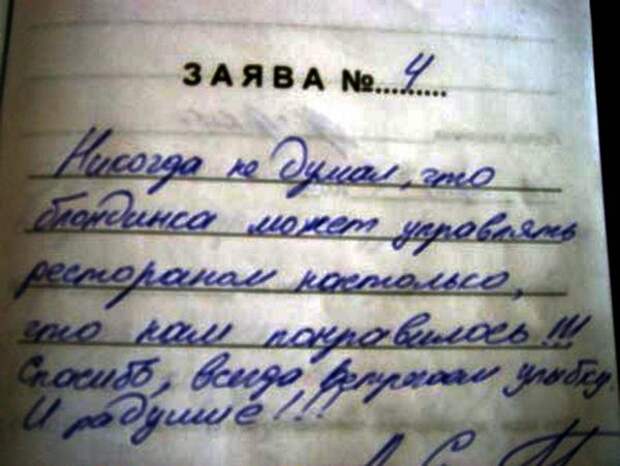 ЗАЯВА №....4....
Никогда не думал, что
блондинка может управлять
рестораном настолько,
что нам понравилось!!!
Спасибо, всегда встречаем улыбку
И радушие!!!